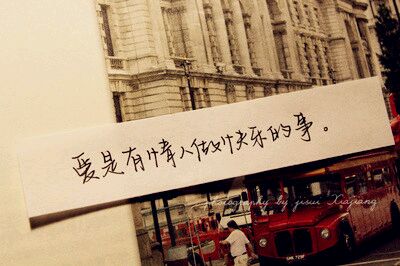 爱是有情人做快乐的事。
photography by jisui Xiajiang